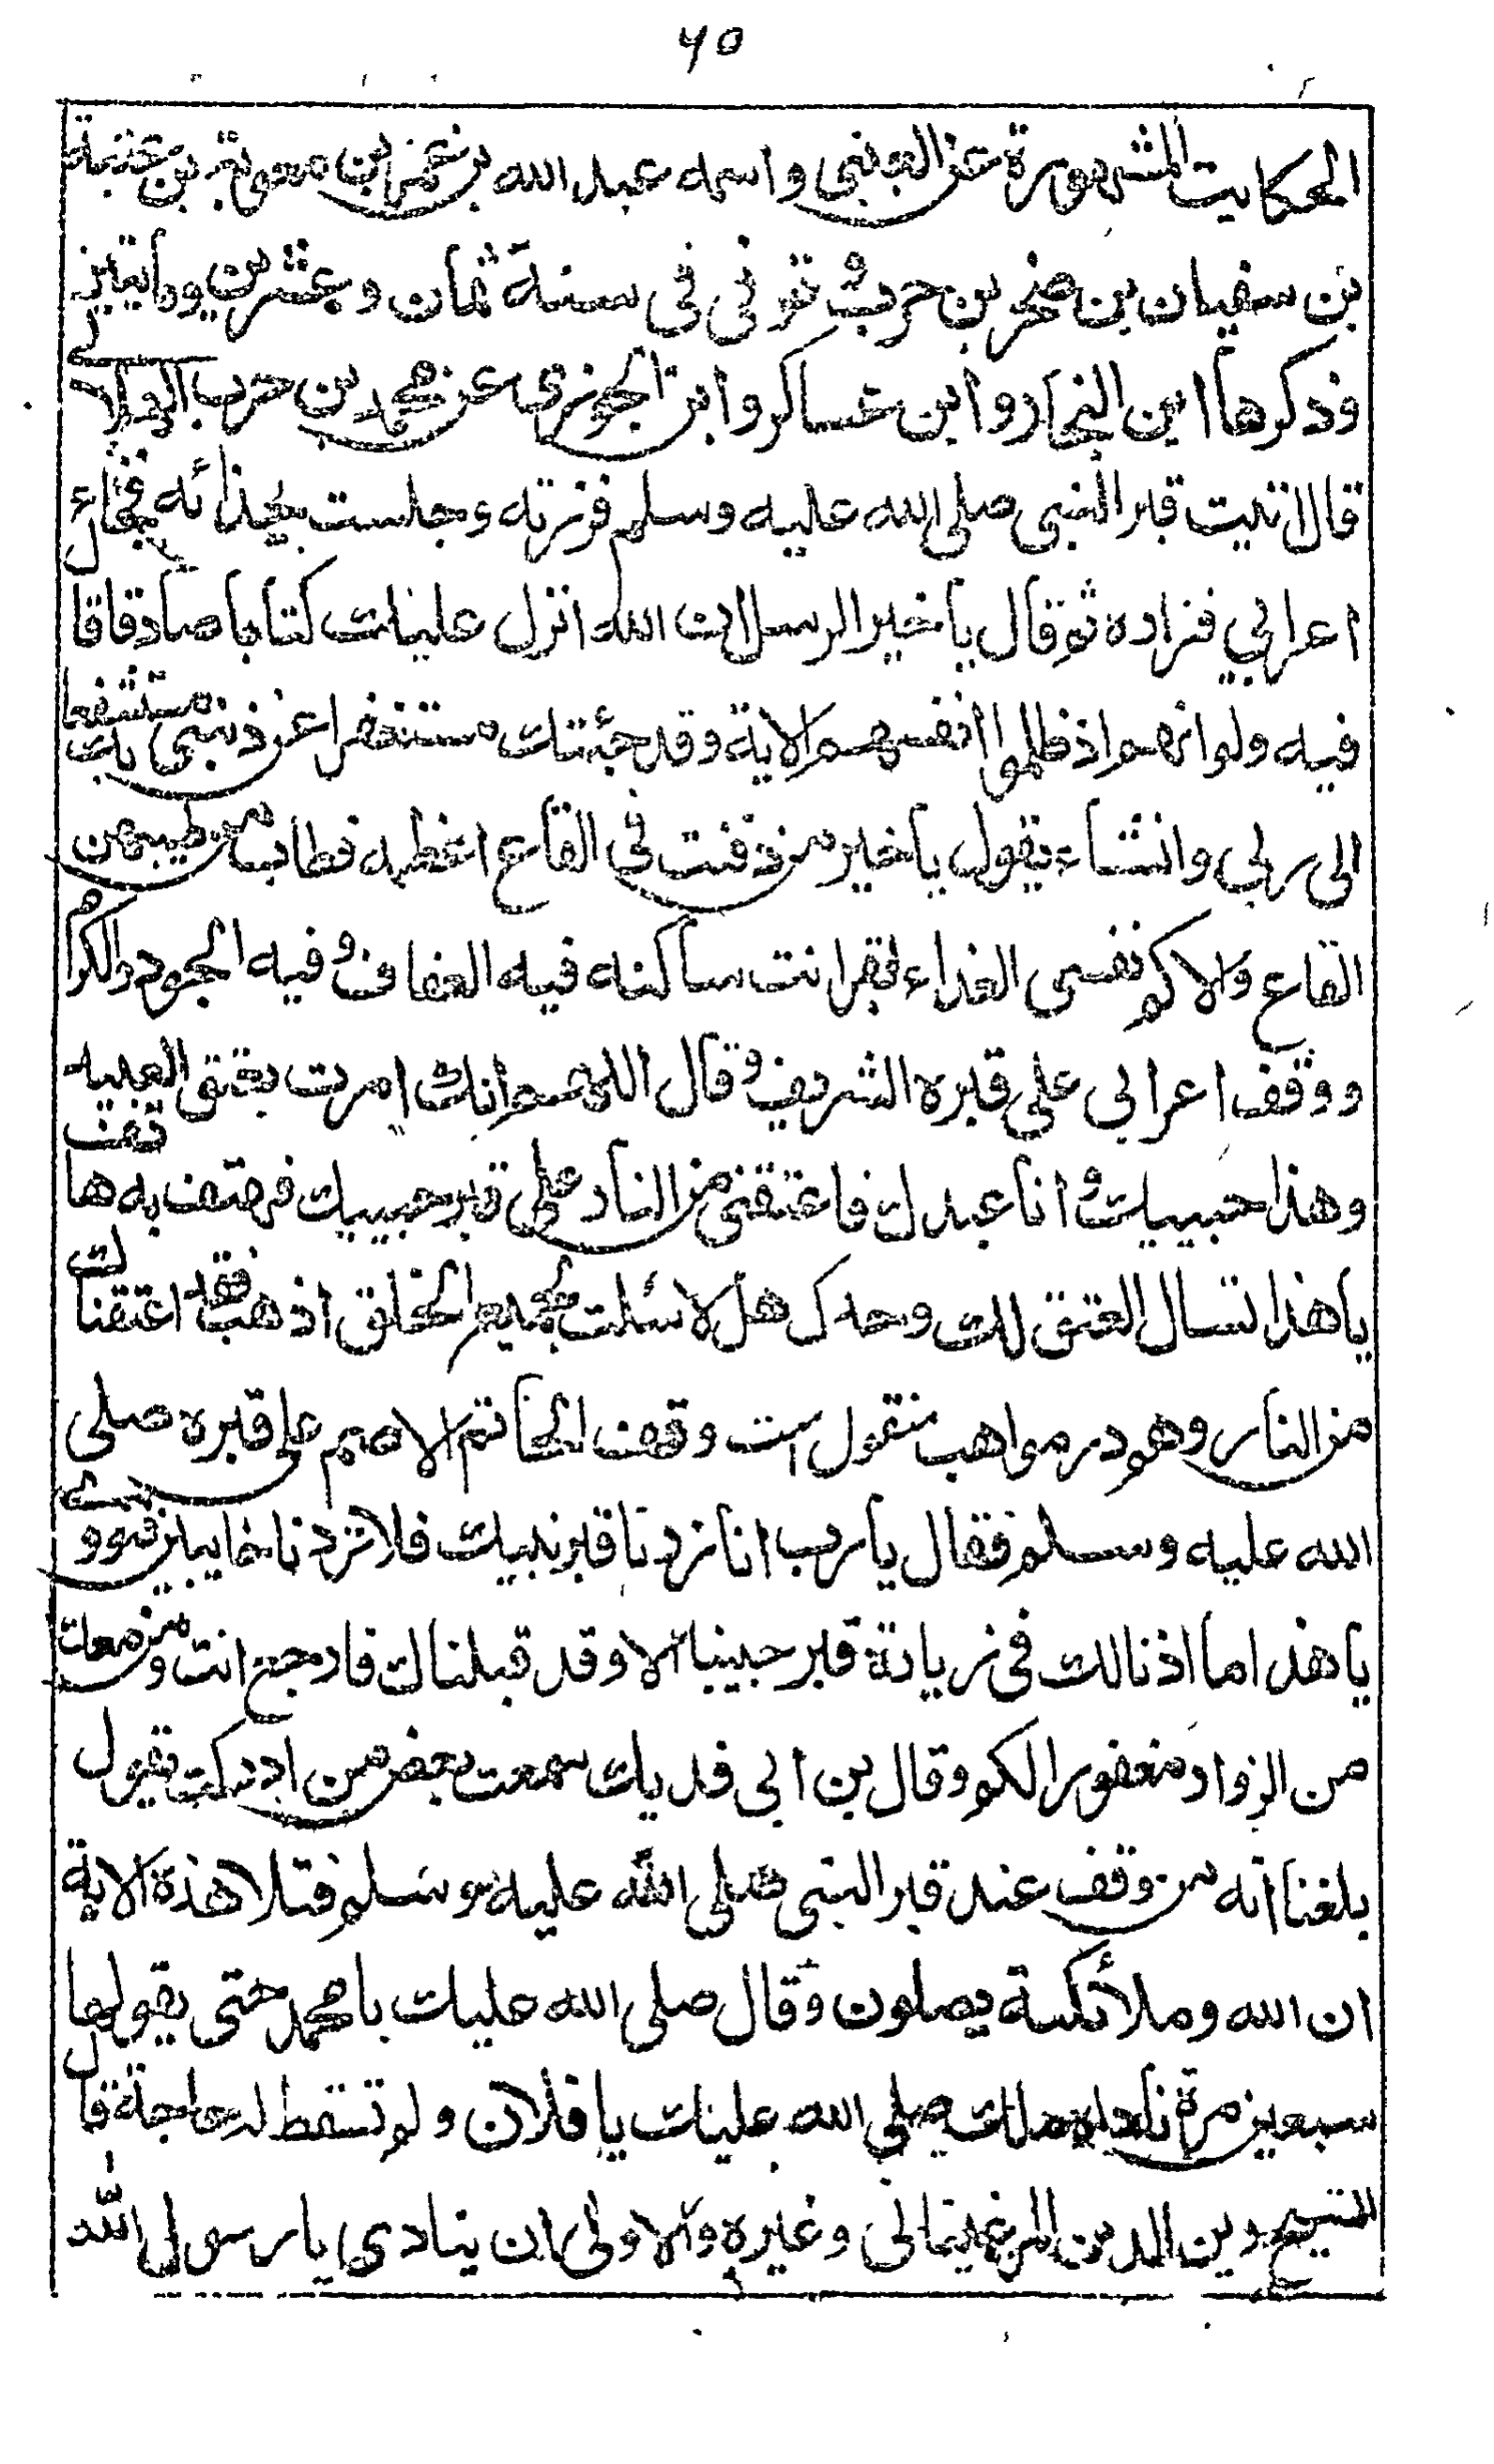 ۶۵
الحكايت المشهورة عن العتبى واسمه عبد الله بن عمر بن معوية بن عتبة
بن سفيان بن صخر بن حرب و توفى فى سنة ثمان وعشرين ومايتين
وذكرها ابن النجار وابن عساكر وابن الجوزى عن محمد بن حرب الهلالے
قال اتيت قبر النبى صلى الله عليه وسلم فزرته وجلست بحذائه فجاء
اعرابي فزاره ثم قال يا خير الرسل ان الله انزل عليك كتابا صادقا قال
فيه ولو انهم اذ ظلموا انفسهم الاية وقد جئتك مستغفرا عن ذنبى مستشفعا بك
الى ربي وانشاء يقول يا خير من دفنت فى القاع اعظمه فطاب من طيبهن
القاع والاكم نفسى الفداء لقبر انت ساكنه فيه العفاف و فيه الجود والكرم
ووقف اعرابي على قبره الشريف و قال اللهم انك امرت بعتق العبيد
وهذا حبيبك و انا عبدك فاعتقنى من النار على قبر حبيبك فهتف به هاتف
يا هذا تسال العتق لك وحدك هل لا سئلت لجميع الخلق اذهب فقد اعتقناك
من النار وهم در مواهب منقول است وقف الحاتم الاصم على قبره صلى
الله عليه وسلم فقال يا رب انا زرنا قبر نبيك فلا تردنا خايبين فنودے
يا هذا ما اذنا لك فى زيارة قبر حبيبنا الا وقد قبلناك فارجع انت ومن معك
من الزوار مغفورا لكم وقال بن ابي فديك سمعت بعض من ادركت يقول
بلغنا انه من وقف عند قبر النبى صلى الله عليه وسلم فتلا هذه الاية
ان الله وملائكته يصلون و قال صلى الله عليك يا محمد حتى يقولها
سبعين مرة ناداه ملك صلى الله عليك يا فلان ولم تسقط له حاجة قال
الشيخ زين الدين المراغى وغيره والاولى ان ينادى يا رسول الله